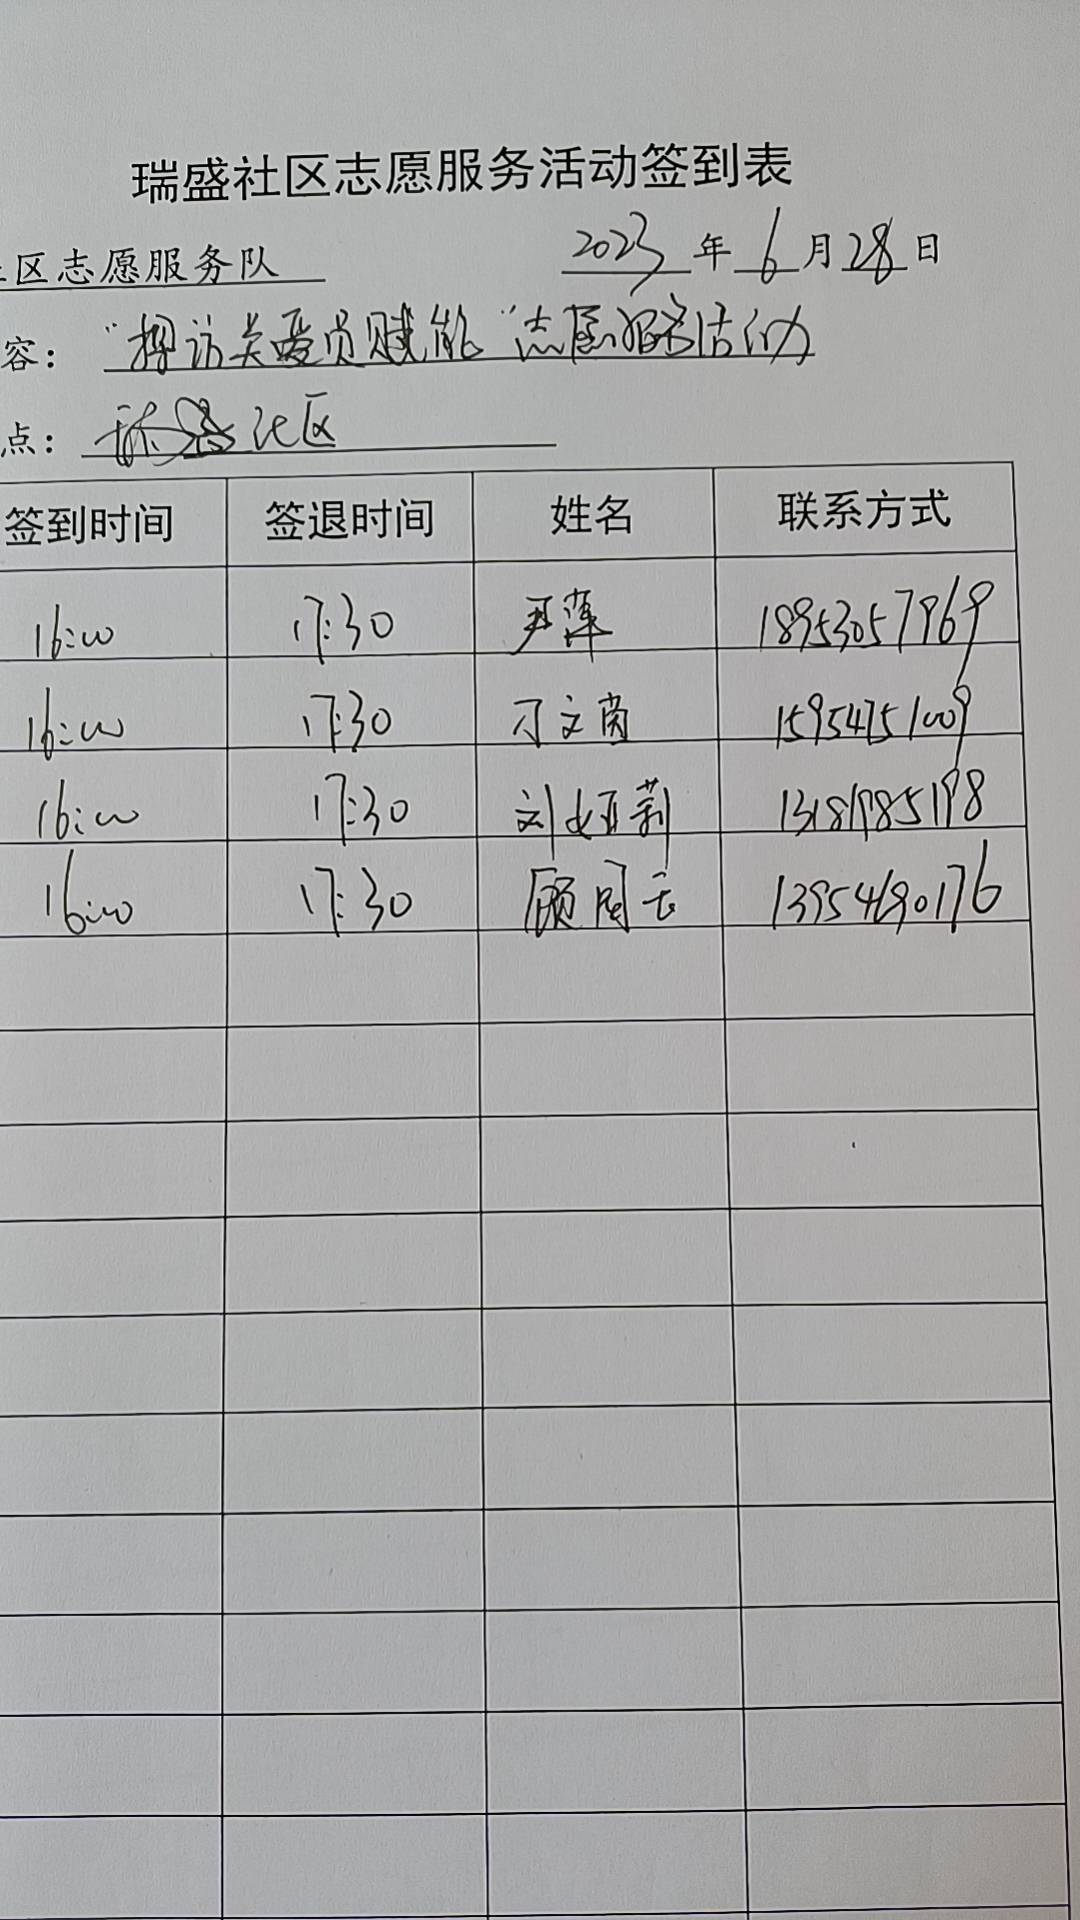 瑞盛社区志愿服务活动签到表
区志愿服务队 2023年6月28日
容： “探访关爱员赋能”志愿服务活动
点： 社区
签到时间 签退时间 姓名 联系方式
16:00 17:30 尹萍 18953057969
16:00 17:30 刁文茵 15954751009
16:00 17:30 刘亚莉 13181985198
16:00 17:30 顾周云 13954690176